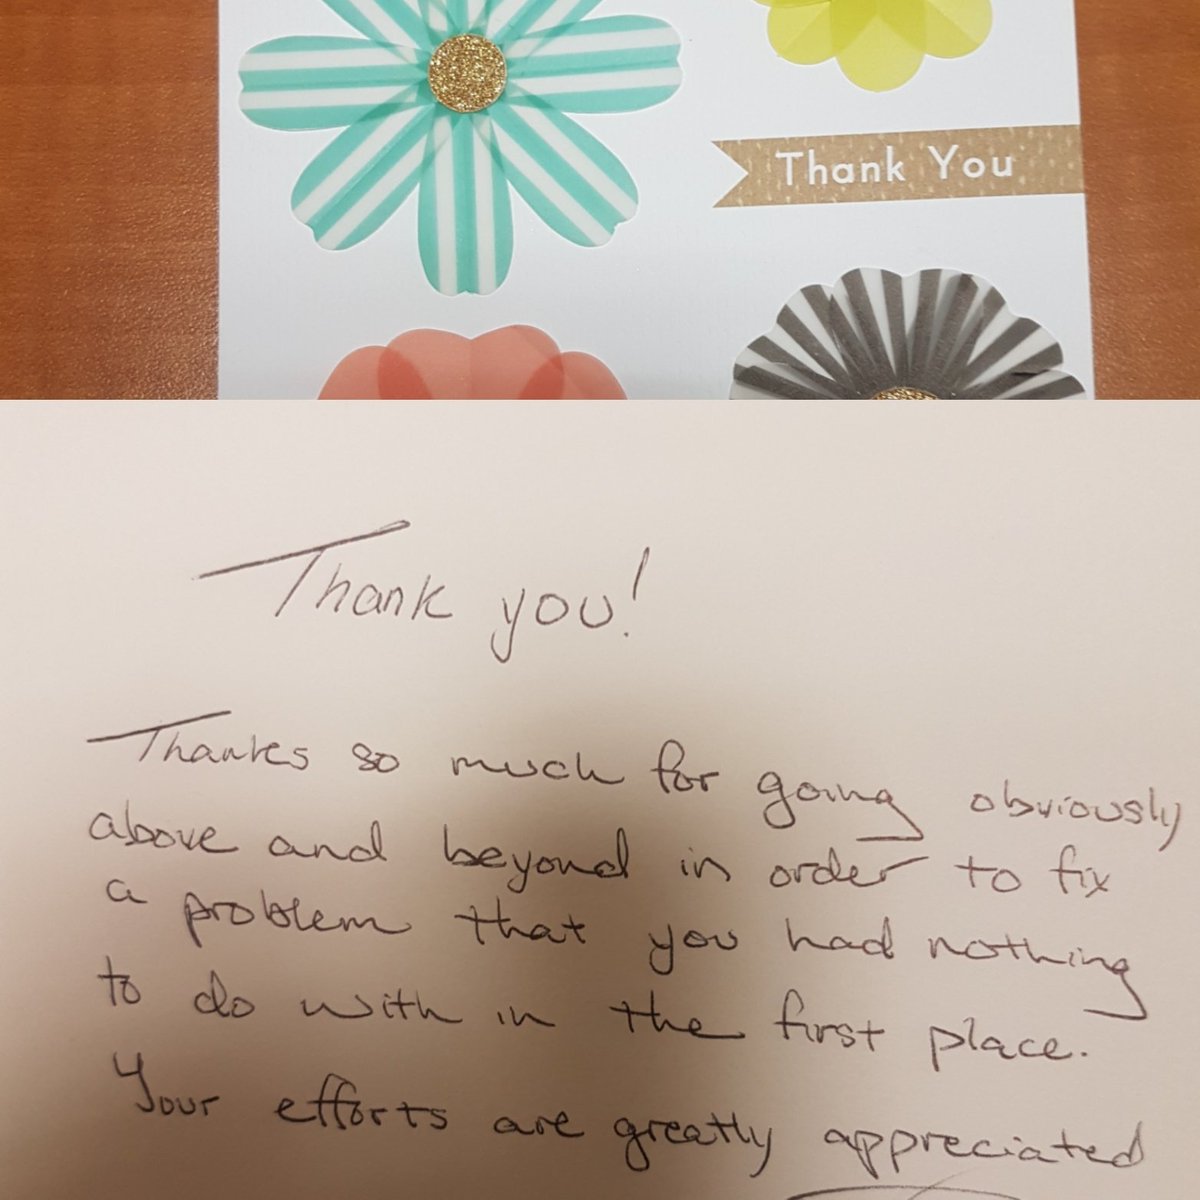 Thank You
Thank you!
Thanks so much for going obviously
above and beyond in order to fix
a problem that you had nothing
to do with in the first place.
Your efforts are greatly appreciated